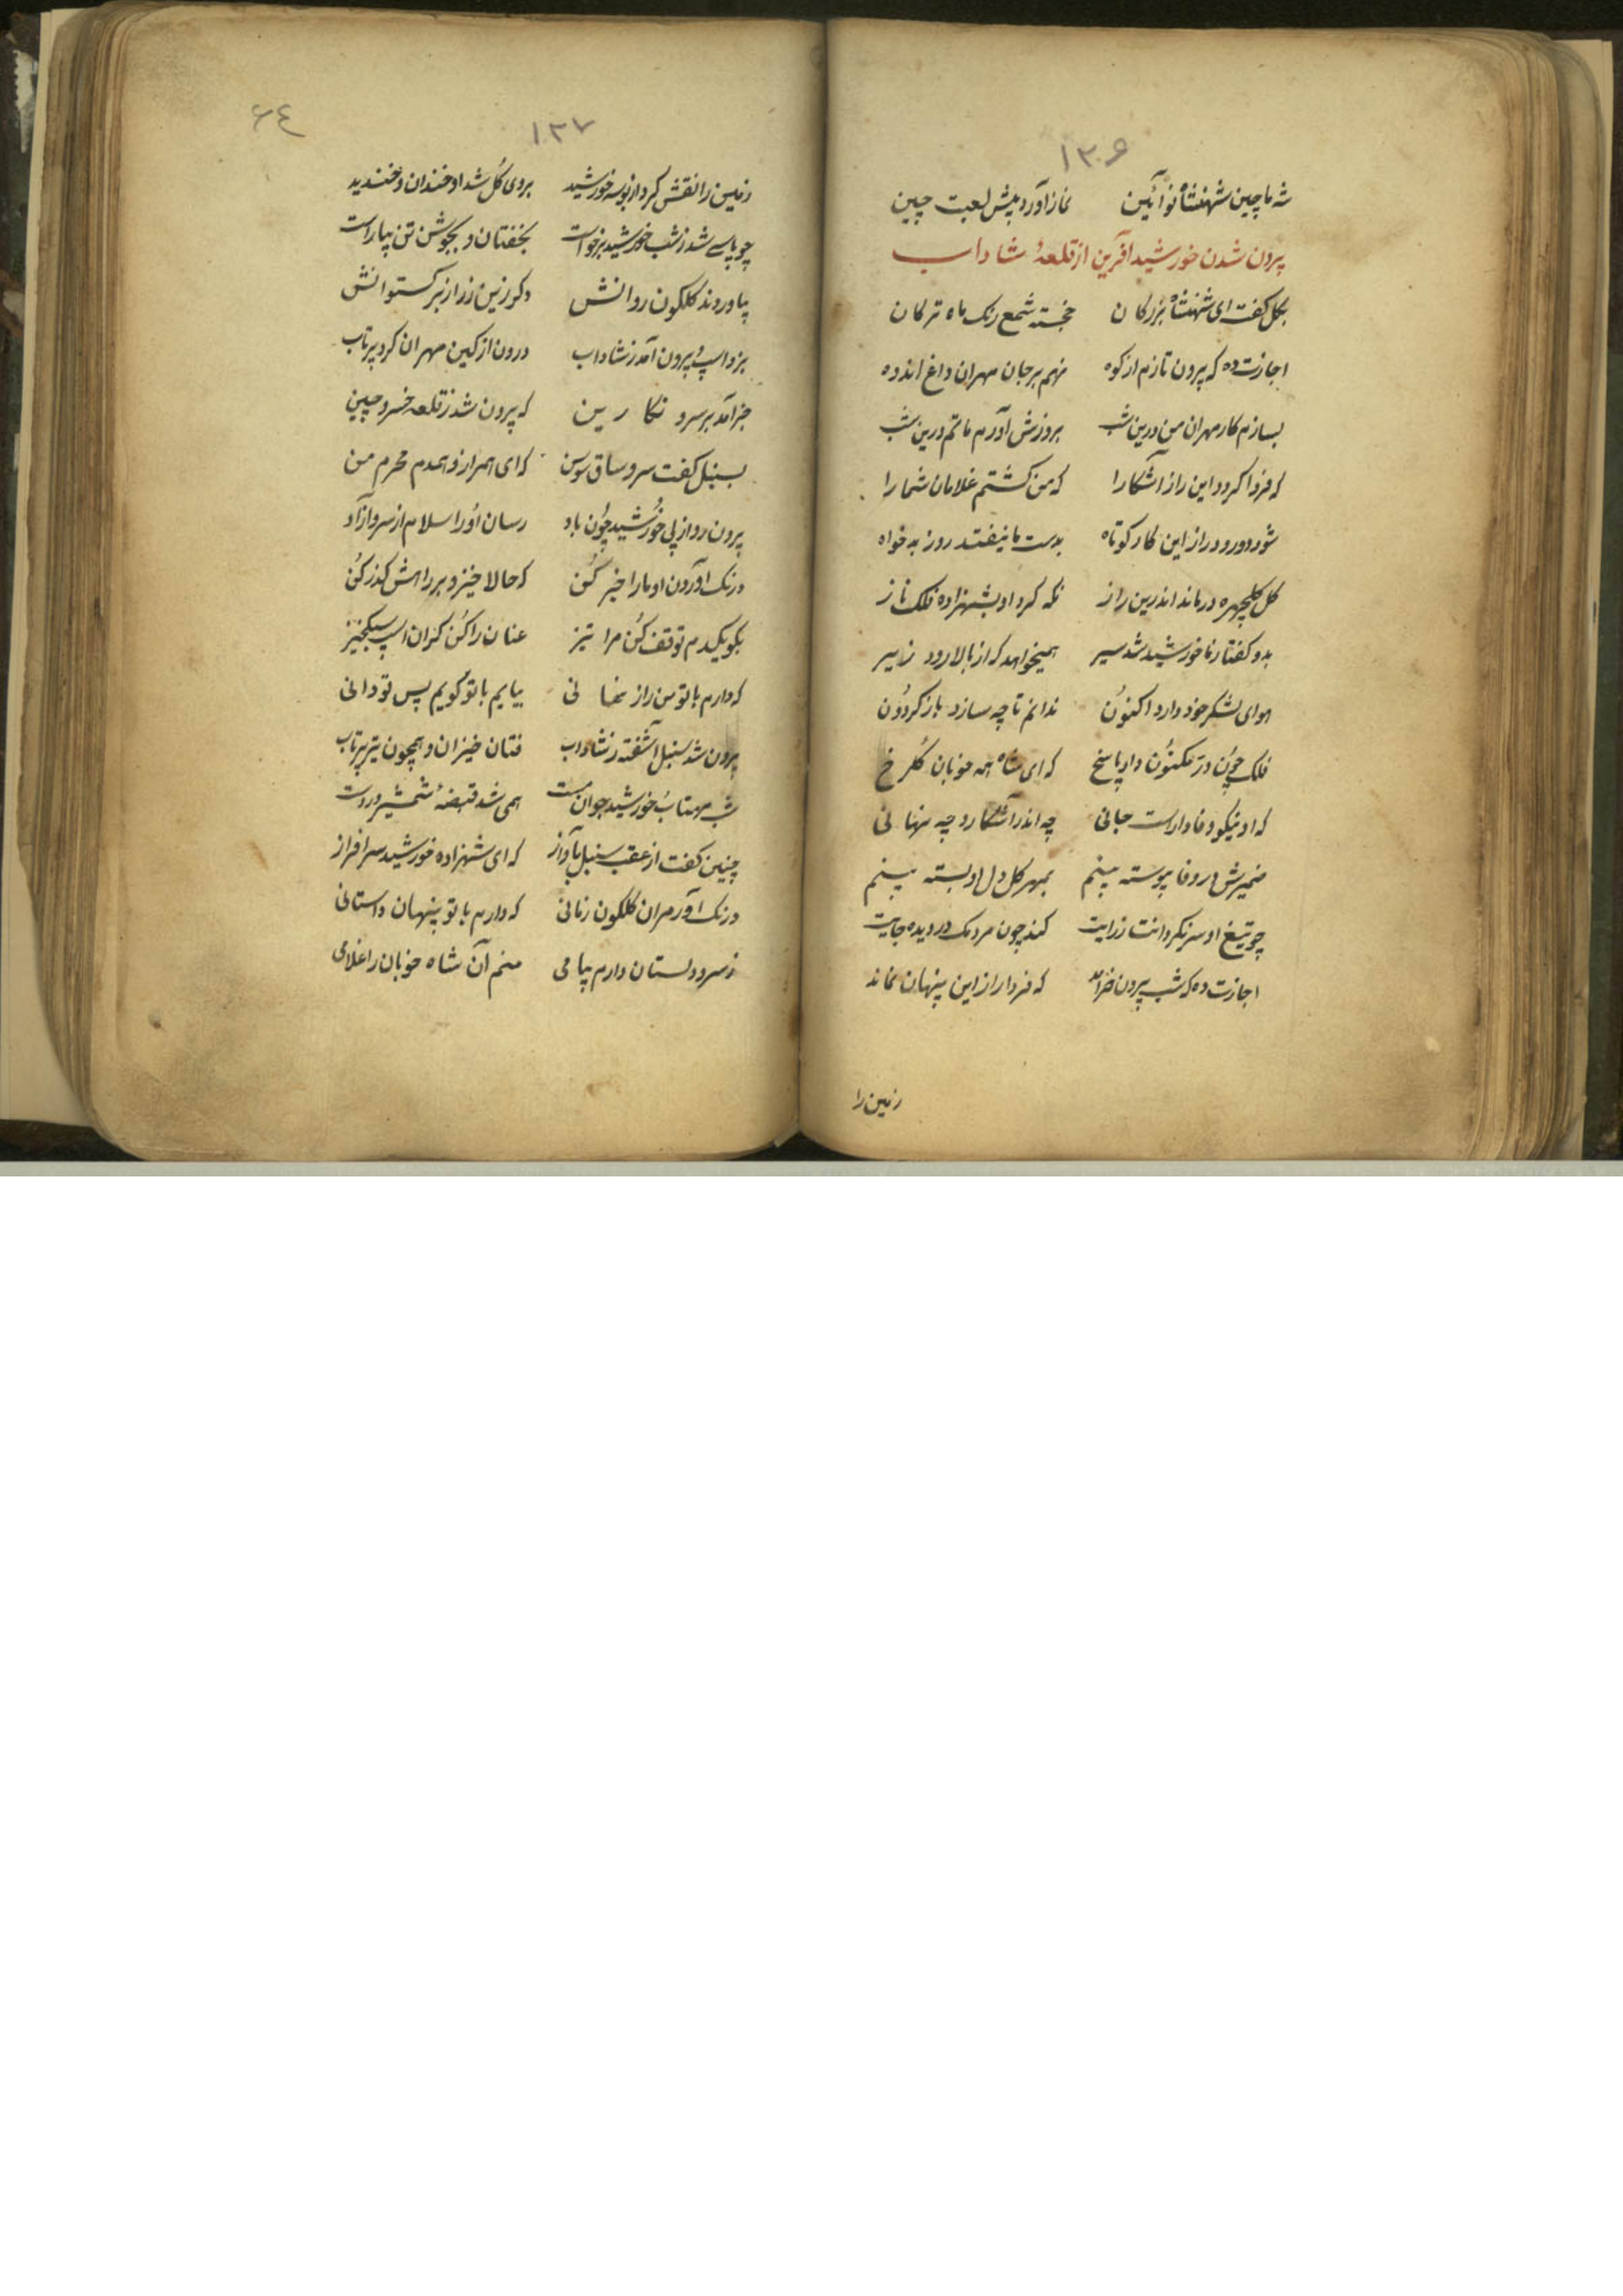 ۱۳۶
شه ماچین شهنشاه نوآئین نماز آورد پیش لعبت چین
بیرون شدن خورشید آفرین از قلعهٔ شاداب
بکل کفت ای شهنشاه بزرکان خجسته شمع رنک ماه ترکان
اجازت ده که بیرون تازم از کوه نهم بر جان مهران داغ اندوه
بسازم کار مهران من درین شب بروزش آورم ماتم درین شب
که فردا کردد این راز آشکارا که من کشتم غلامان شما را
شود دور و دراز این کار کوتاه بدست ما نیفتد روز بدخواه
کل کلچهره درماند اندرین راز نکه کرد او بشهزاده فلک ناز
بدو کفتا خورشید شد سیر همیخواهد که از بالا رود زیر
هوای لشکر خود دارد اکنون ندانم تا چه سازد باز کردون
فلک چون در مکنون داد پاسخ که ای شاه همه خوبان کلرخ
که او نیکو وفادارست جانی چه اندر آشکارا و چه نهانی
ضمیرش در وفا پیوسته بینم بمهر کل دل او بسته بینم
چو تیغ او سر نکردانت ز رایت کند چون مردمک در دیده جایت
اجازت ده که شب بیرون خرامد که فردا راز این پنهان نماند
زمین را
۱۳۷
۶٤
زمین را نقش کرد از بوسه خورشید بروی کل شد او خندان و خندید
چو پاسی شد ز شب خورشید برخواست بخفتان و بجوشن تن بیاراست
بیاوردند کلکون روانش دکر زین زر از برکستوانش
بزد اسپ و بیرون آمد ز شاداب درون از کین مهران کرد پرتاب
خبر آمد بر سرو نکارین که بیرون شد ز قلعه خسرو چین
بسنبل کفت سرو ساق سوسن که ای همراز و همدم محرم من
بیرون رو از پی خورشید چون باد رسان او را سلام از سرو آزاد
درنک آور دن او ما را خبر کن که حالا خیز و بر راهش کذر کن
بکو یکدم توقف کن مرا تیز عنان را کن کران اسپ سبکخیز
که دارم با تو من راز نهانی بیایم با تو کویم پس تو دانی
بیرون شد سنبل آشفته ز شاداب فتان خیزان و همچون تیر پرتاب
شب مهتاب خورشید جوان مست همی شد قبضهٔ شمشیر در دست
چنین کفت از عقب سنبل بآواز که ای شهزاده خورشید سرافراز
درنک آور مران کلکون زمانی که دارم با تو پنهان داستانی
ز سرو دلستان دارم پیامی منم آن شاه خوبان را غلامی